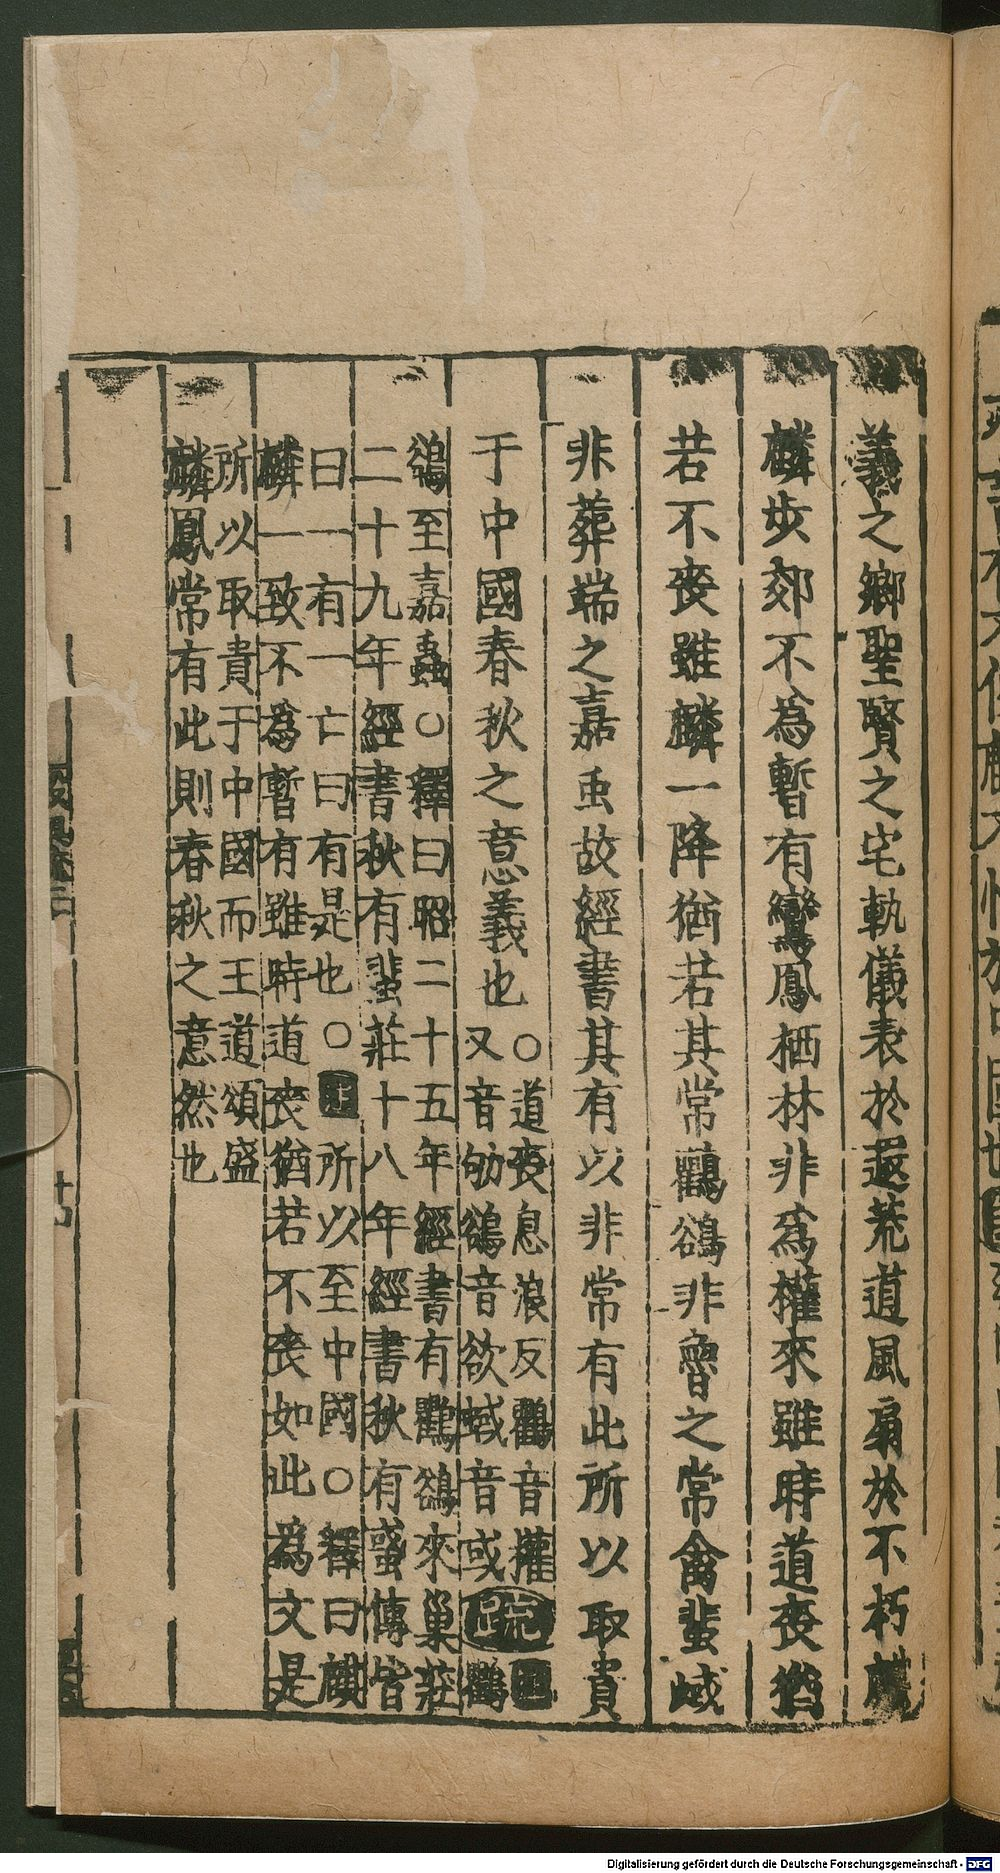 義之鄉聖賢之宅軌儀表於遐荒道風扇於不朽麒
麟步郊不為暫有鸞鳳栖林非為權來雖時道喪猶
若不喪雖麟一降猶若其常鸛鵒非魯之常禽蜚蜮
非葬端之嘉䖝故經書其有以非常有此所以取貴
于中國春秋之意義也
○道喪息浪反鸛音權
又音劬鵒音欲蜮音或疏鸛
鵒至嘉蟲○釋曰昭二十五年經書有鸛鵒來巢莊
二十九年經書秋有蜚莊十八年經書秋有蜮傳皆
曰一有一亡曰有是也○注所以至中國○釋曰麒
麟一致不為暫有雖時道喪猶若不喪如此為文是
所以取貴于中國而王道頌盛
麟鳳常有此則春秋之意然也
十九
Digitalisierung gefördert durch die Deutsche Forschungsgemeinschaft - DFG